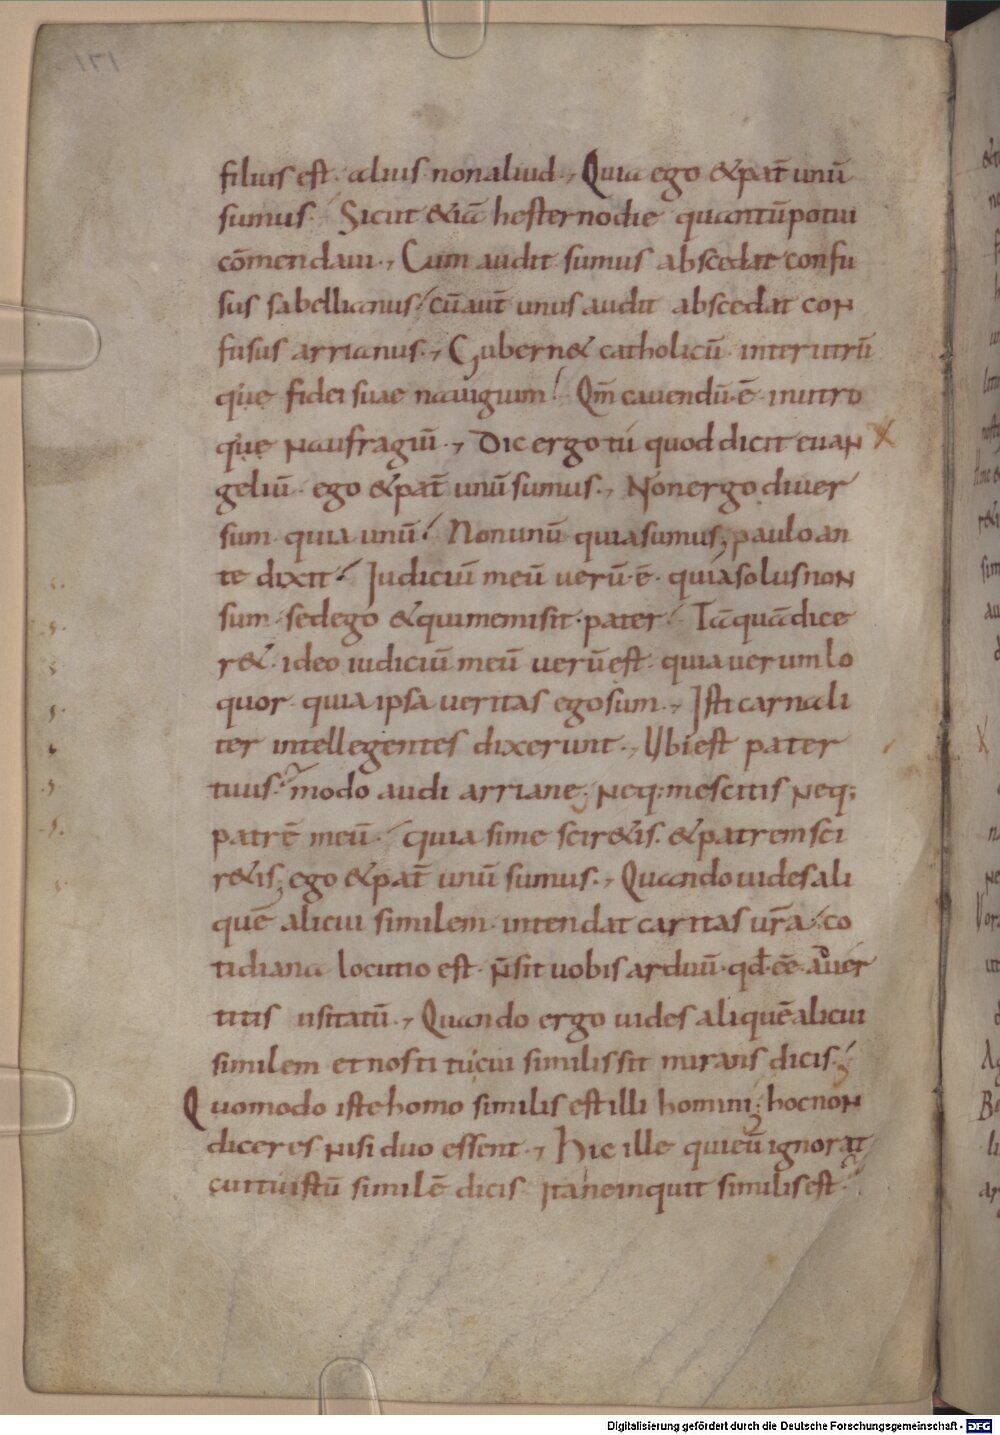 171
filius est. alius non aliud., Quia ego &pat̄ unū
sumus. Sicut &iā hesternodie quantū potui
cōmendaui., Cum audit sumus abscedat confu
sus sabellianus. cū aut̄ unus audit abscedat con
fusus arrianus., Gubern& catholicū inter utrū
que fidei suae nauigium. Qm̄ cauendū.ē. inutro
que naufragiū., Dic ergo tu quod dicit euan
geliū. ego &pat̄ unū sumus., Non ergo diuer
sum. quia unū. Non unū quia sumus; paulo an
te dixit. Iudiciū meū uerū.ē. quia solus non
sum. sed ego & qui me misit. pater. Tāquā dice
r&. ideo iudiciū meū uerū est. quia uerum lo
quor. quia ipsa ueritas ego sum., Isti carnali
ter intellegentes dixerunt., Ubi est pater
tuus. modo audi arriane; neq; me scitis neq;
patrē meū. quia si me scir&is. & patrem sci
r&is; ego &pat̄ unū sumus., Quando uides ali
quē alicui similem. intendat caritas ur̄a. co
tidiana locutio est. n̄ sit uobis arduū. qd̄.ēē. aduer
titis usitatū., Quando ergo uides aliquē alicui
similem et nosti cui similis sit mirans dicis.
Quomodo iste homo similis est illi homini; hoc non
diceres nisi duo essent., Hic ille qui eū ignorat
cui tu istū similē dicis. Itane inquit similis est.
Digitalisierung gefördert durch die Deutsche Forschungsgemeinschaft - DFG